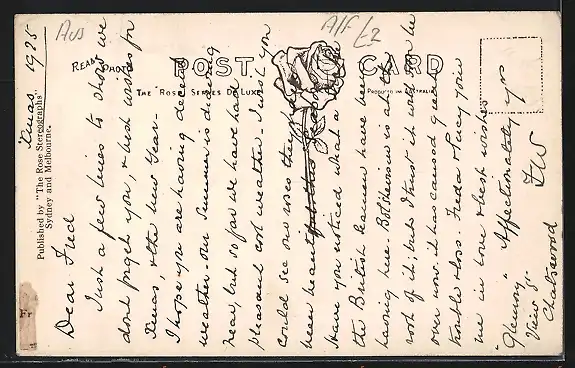 Aus
A/F £2
READ PHOTO
POST CARD
THE "ROSE" SERIES DE LUXE
PRODUCED IN AUSTRALIA
Published by "The Rose Stereographs"
Sydney and Melbourne.
Xmas 1925
Dear Fred
Just a few lines to show we
dont forget you, & best wishes for
Xmas, & the New Year-
I hope you are having decent
weather- our Summer is drawing
near, but so far we have had
pleasant cool weather- I wish you
could see our roses they have
been beautiful this season
Have you noticed what a
the British Seamen have been
having here- Bolshevism is at the
root of it; but I trust it will soon be
over now it has caused great
trouble & loss. Freda & Percy join
me in love & best wishes
Affectionately yrs
FW
"Glenroy"
View St
Chatswood
Fr